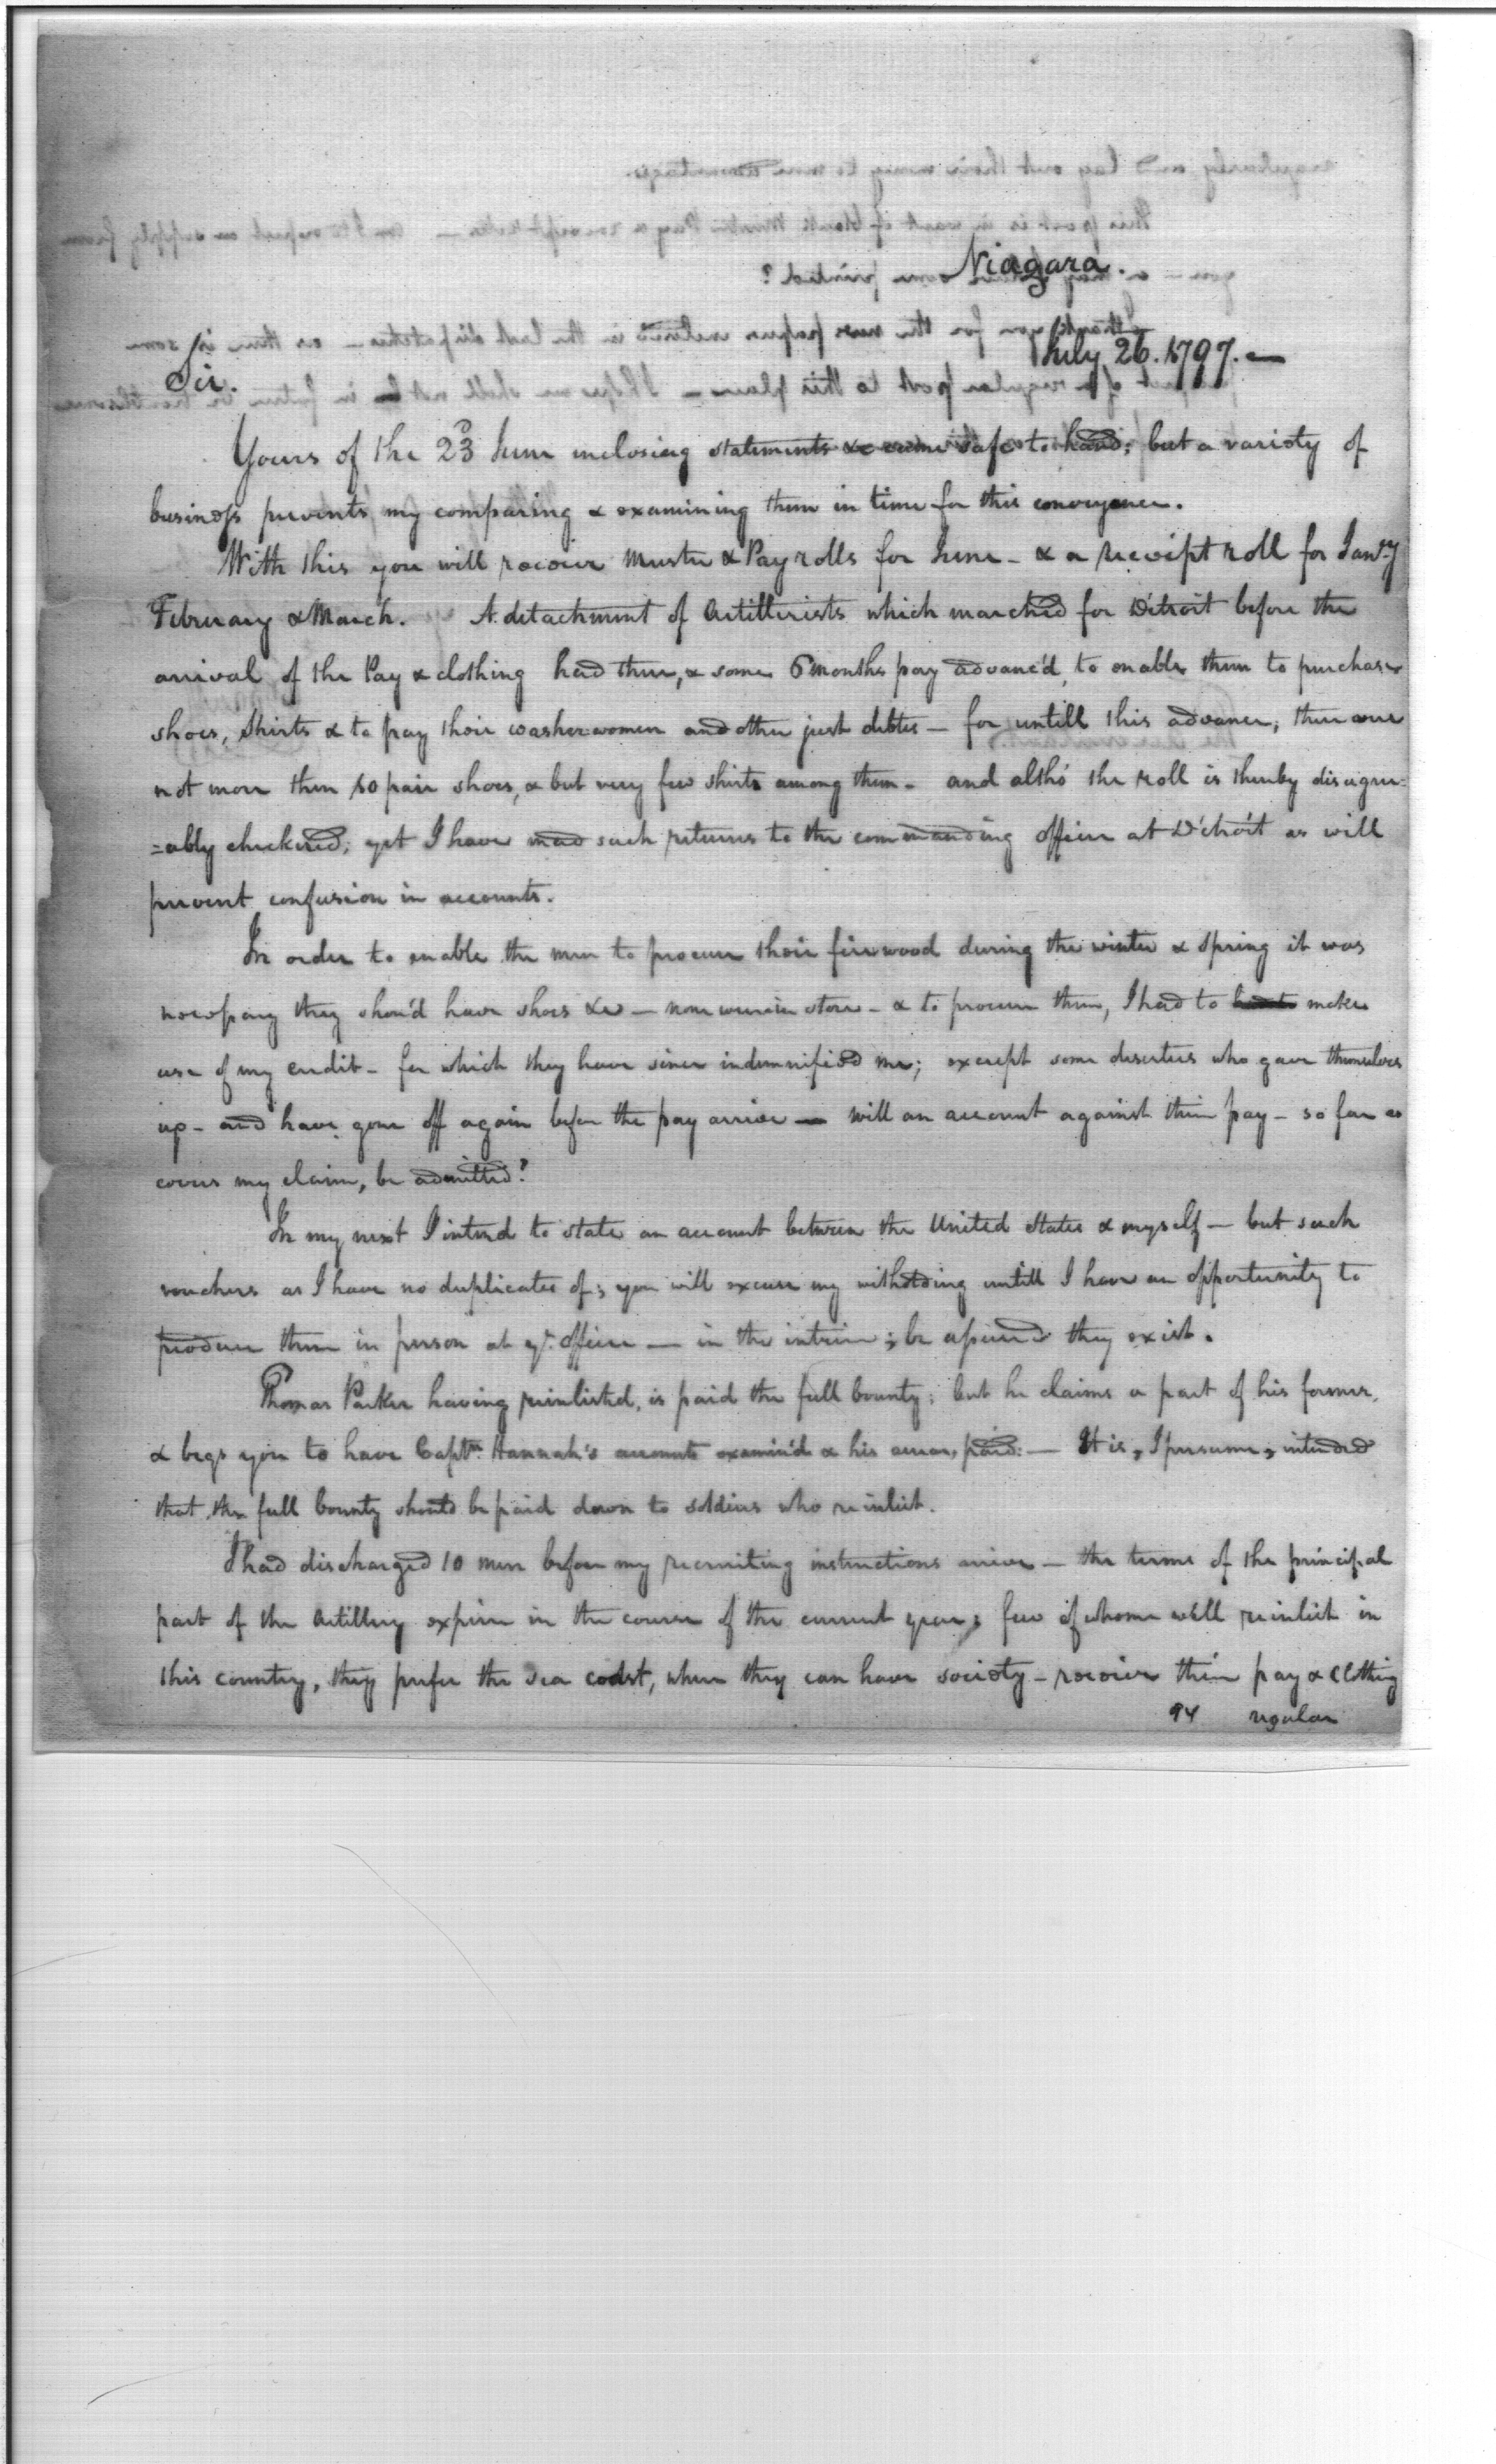 Niagara.
July 26. 1797. —
Sir.
Yours of the 23d June inclosing statements &c came safe to hand; but a variety of
business prevents my comparing & examining them in time for this conveyance.
With this you will receive Muster & Pay rolls for June - & a receipt roll for Janry
February & March. A detachment of Artillerists which marched for Détroit before the
arrival of the Pay & clothing had three, & some 6 months pay advanc'd, to enable them to purchase
shoes, Shirts & to pay their washerwomen and other just debts — for untill this advance, there were
not more then 10 pair shoes, & but very few shirts among them - and altho' the roll is thereby disagree=
=ably checkered; yet I have mad such returns to the commanding officer at Détroit as will
prevent confusion in accounts.
In order to enable the men to procure their fire wood during the winter & spring it was
necessary they shou'd have shoes &c — none were in store - & to procure them, I had to make
use of my credit - for which they have since indemnified me; except some deserters who gave themselves
up - and have gone off again before the pay arrive — will an account against their pay - so far as
covers my claim, be admitted?
In my next I intend to state an account between the United States & myself — but such
vouchers as I have no duplicates of; you will excuse my witholding untill I have an opportunity to
produce them in person at yr. office — in the intrim; be assured they exist.
Thomas Parker having reinlisted, is paid the full bounty; but he claims a part of his former,
& begs you to have Captn. Hannah's accounts examin'd & his arrears, paid: — It is, I presume, intended
that the full bounty should be paid down to soldiers who reinlist.
I had discharged 10 men before my recruiting instructions arrive — the terms of the principal
part of the Artillery expire in the course of the current year; few of whome will reinlist in
this country, they prefer the sea coast, where they can have society - receive their pay & Clothing
94 regular